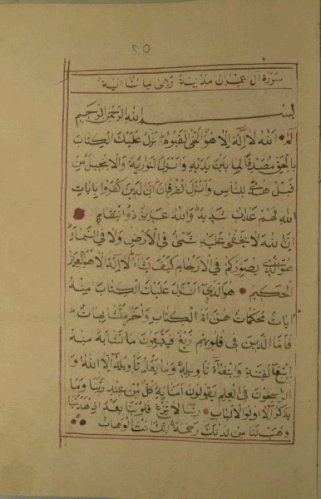 ٢٥
سورة ال عمران مدنية وهى مائتا اية
بسم الله الرحمن الرحيم
الم الله لا اله الا هو الحى القيوم نزل عليك الكتاب
بالحق مصدقا لما بين يديه وانزل التورية والانجيل من
قبل هدى للناس وانزل الفرقان ان الذين كفروا بايات
الله لهم عذاب شديد والله عزيز ذو انتقام
ان الله لا يخفى عليه شئ فى الارض ولا فى السماء
هو الذى يصوركم فى الارحام كيف يشاء لا اله الا هو العزيز
الحكيم هو الذى انزل عليك الكتاب منه
ايات محكمات هن ام الكتاب واخر متشابهات
فاما الذين فى قلوبهم زيغ فيتبعون ما تشابه منه
ابتغاء الفتنة وابتغاء تاويله وما يعلم تاويله الا الله و
الراسخون فى العلم يقولون امنا به كل من عند ربنا وما
يذكر الا اولوا الالباب ربنا لا تزغ قلوبنا بعد اذ هديتنا
وهب لنا من لدنك رحمة انك انت الوهاب